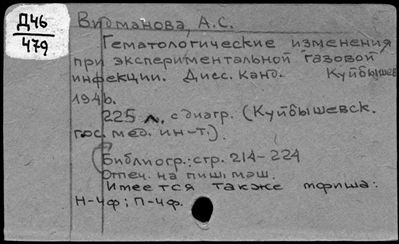 Д46
479
Видманова, А.С.
Гематологические изменения
при экспериментальной газовой
инфекции. Дисс. канд. Куйбышев
1946.
225 л. с диагр. (Куйбышевск.
гос. мед. ин-т.).
Библиогр.: стр. 214-224
Отпеч. на пиш. маш.
Имеется также тфиша:
Н-4ф; П-4ф.